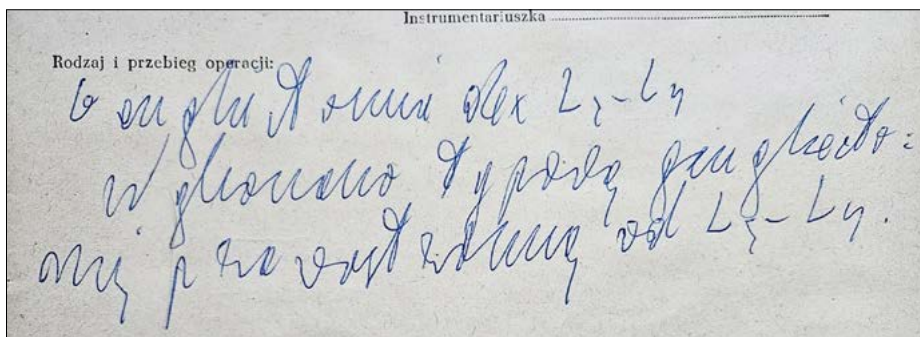 Instrumentariuszka
Rodzaj i przebieg operacji:
Gangliectomia dex L2-L4
Wykonano typową gangliecto-
mię prawostronną od L2-L4.